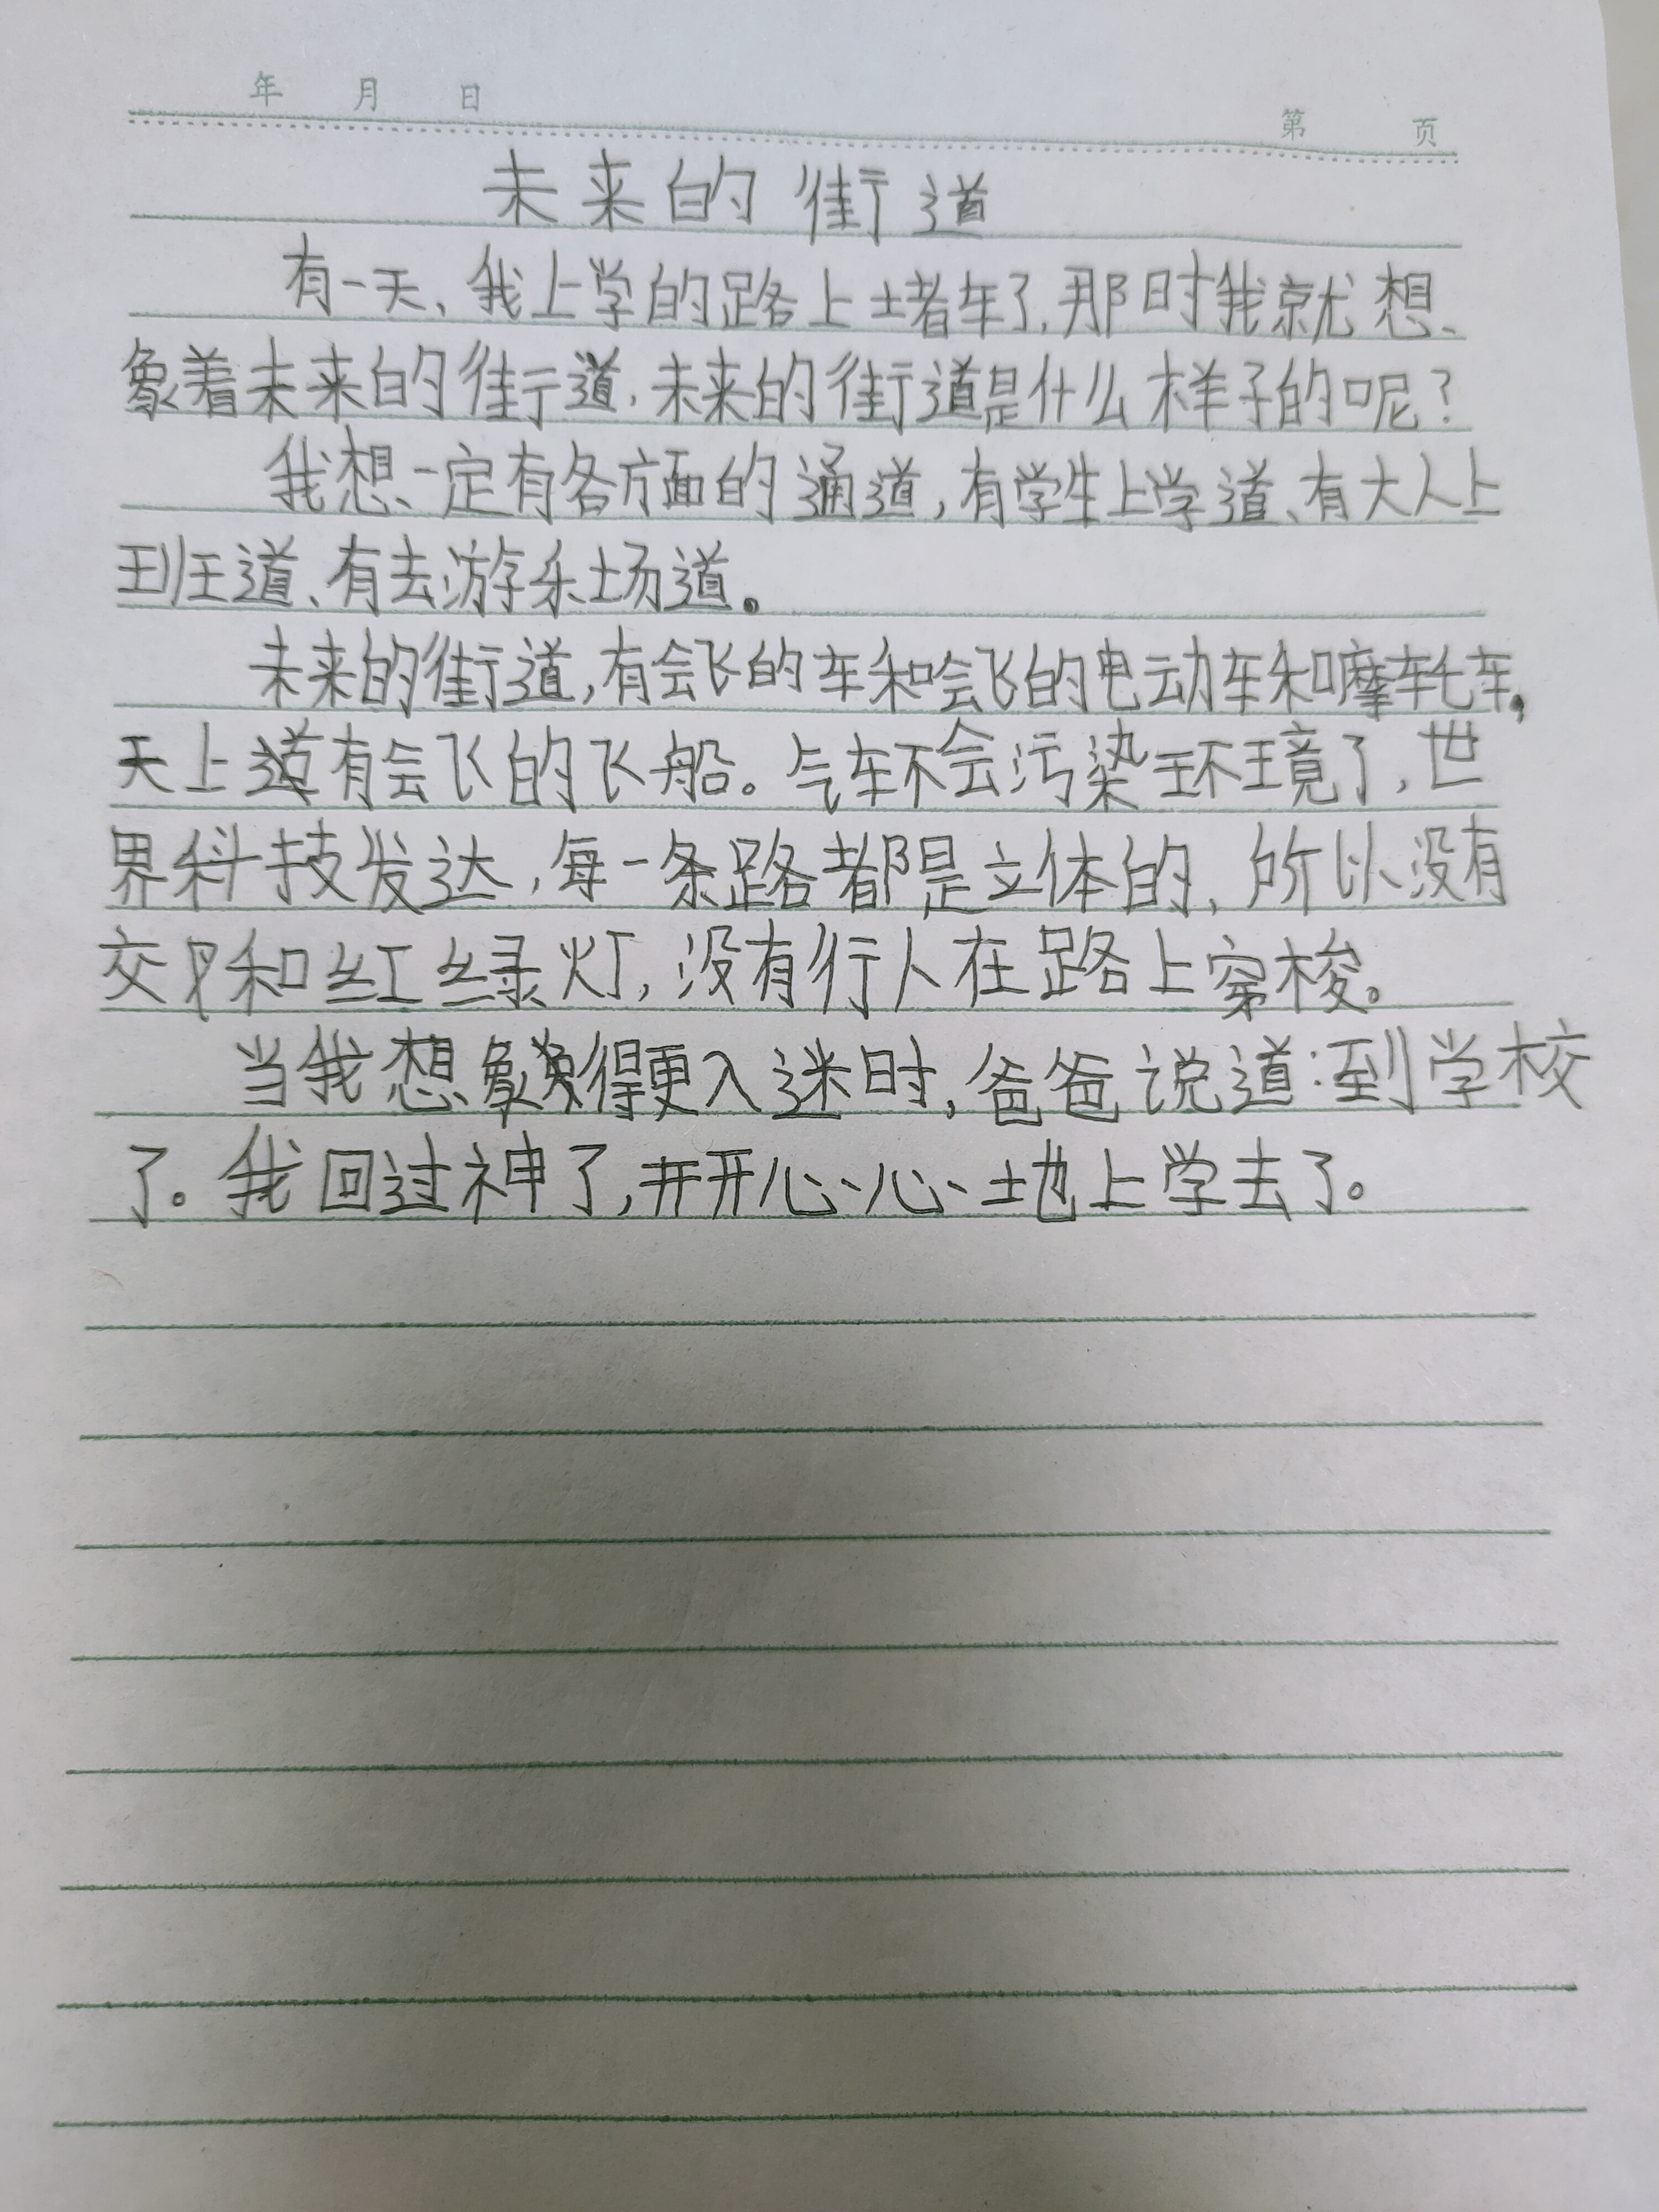 年 月 日
第 页
未来的街道
有一天,我上学的路上堵车了,那时我就想
象着未来的街道,未来的街道是什么样子的呢?
我想一定有各方面的通道,有学生上学道、有大人上
班道、有去游乐场道。
未来的街道,有会飞的车和会飞的电动车和摩托车,
天上道有会飞的飞船。气车不会污染环境了,世
界科技发达,每一条路都是立体的,所以没有
交叉和红绿灯,没有行人在路上穿梭。
当我想象得更入迷时,爸爸说道:到学校
了。我回过神了,开开心心地上学去了。